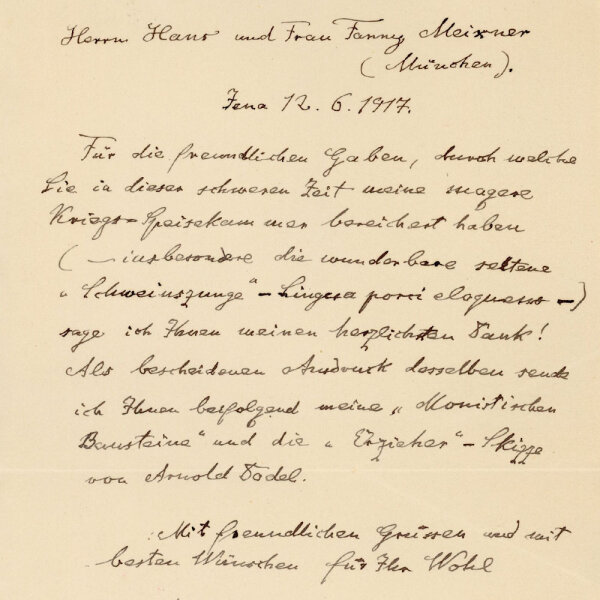 Herrn Hans und Frau Fanny Meixner
(München).
Jena 12. 6. 1917.
Für die freundlichen Gaben, durch welche
Sie in dieser schweren Zeit meine magere
Kriegs-Speisekammer bereichert haben
(— insbesondere die wunderbare seltene
„Schweinszunge" – Lingua porci eloquens –)
sage ich Ihnen meinen herzlichsten Dank!
Als bescheidenen Ausdruck desselben sende
ich Ihnen beifolgend meine „Monistischen
Bausteine" und die „Erzieher"-Skizze
von Arnold Dodel.
Mit freundlichen Grüssen und mit
besten Wünschen für Ihr Wohl